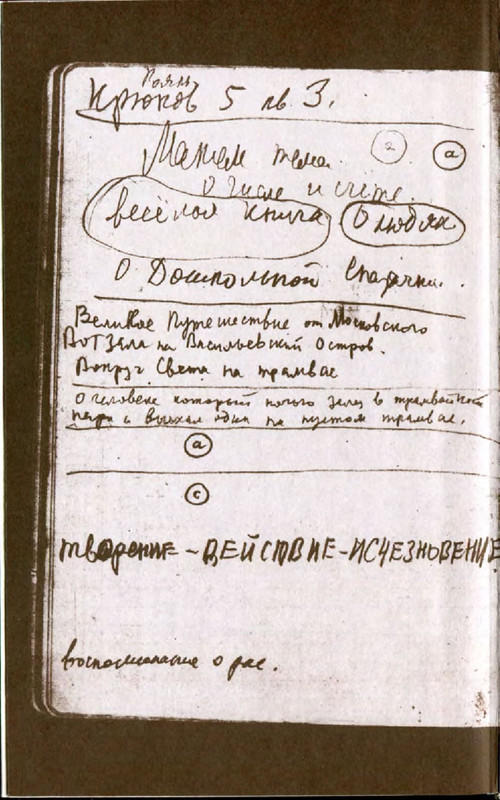 Крюков 5 кв 3.
Матем тема. 2 а
О числе и счёте.
весёлая книга О людях
О Дошкольной
Великое Путешествие от Московского
Вогзала на Васильевский Остров.
Вокруг Света на трамвае
О человеке который ночью залез в трамвайной
парк и выехал один на пустом трамвае.
а
с
творение - ДЕЙСТВИЕ - ИСЧЕЗНОВЕНИЕ
воспоминание о рае.